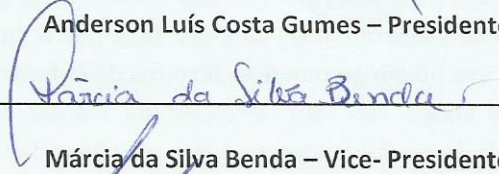 Anderson Luís Costa Gumes – Presidente
Márcia da Silva Benda
Márcia da Silva Benda – Vice- Presidente